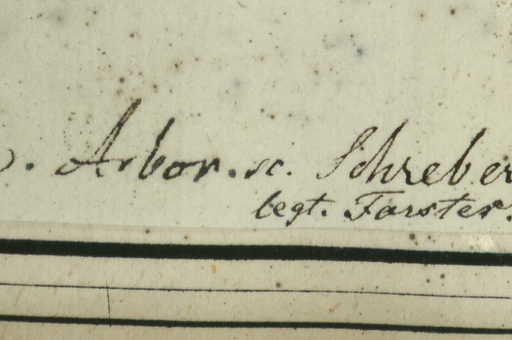 . Arbor. sc. Schreber
legt. Forster.